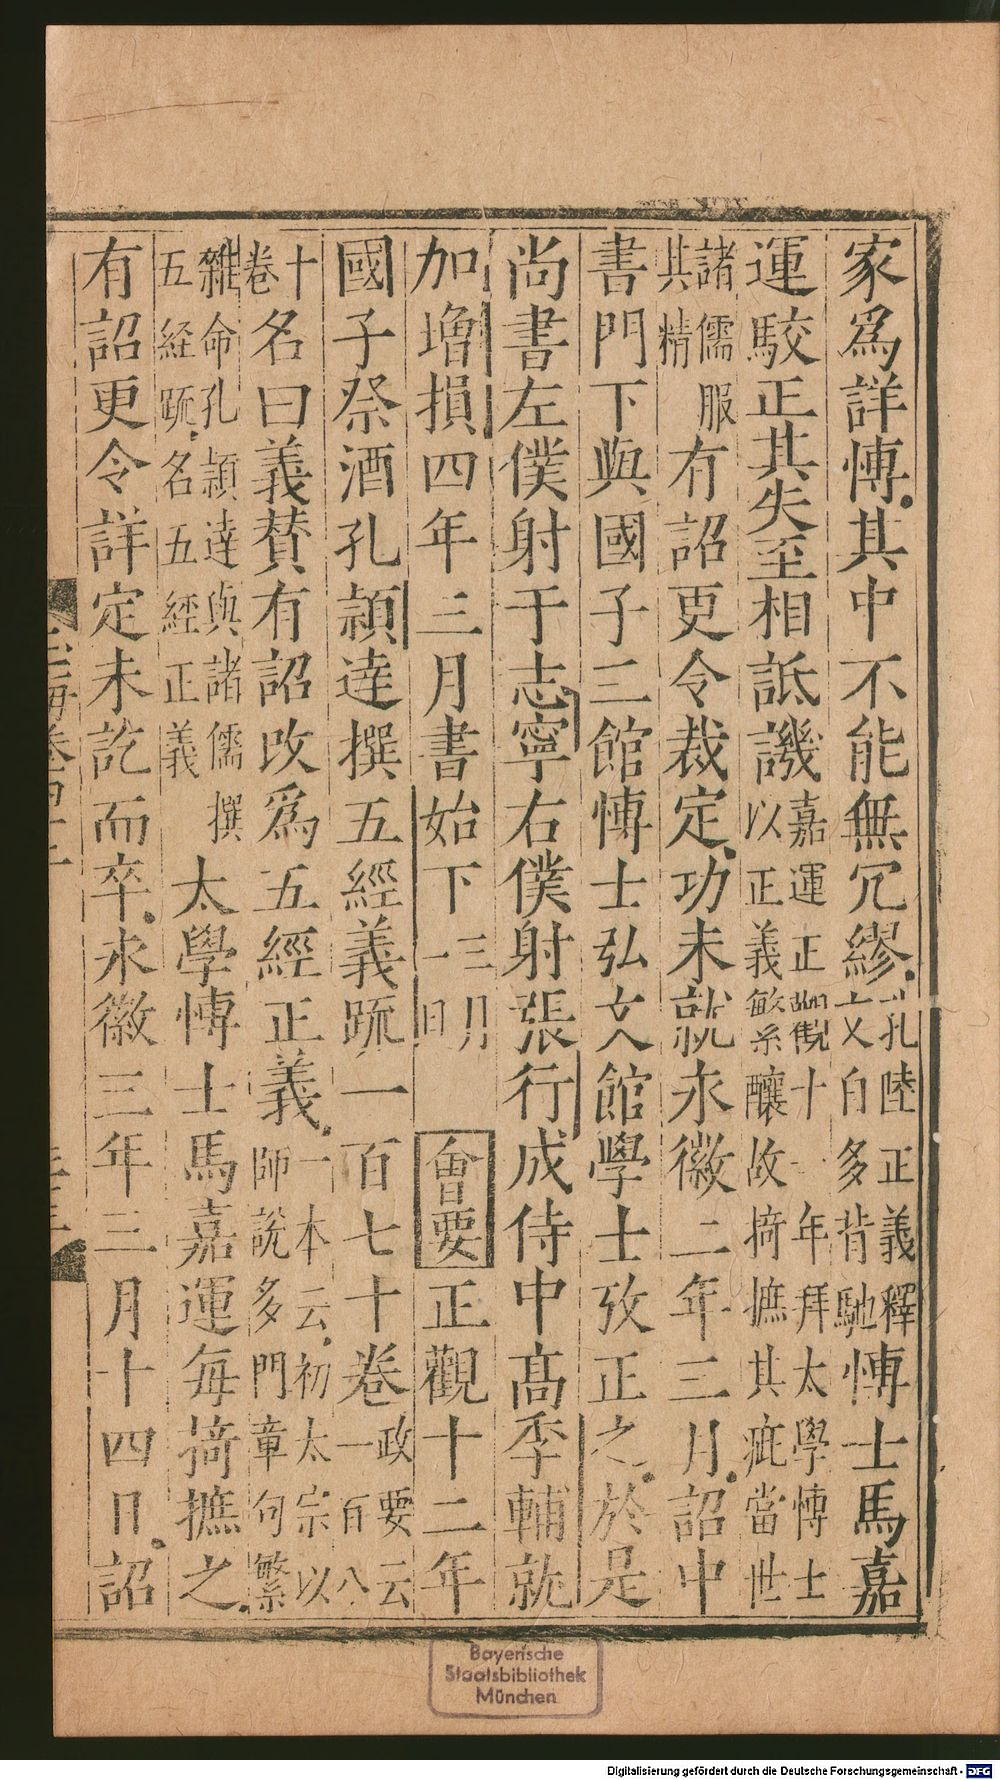 家為詳愽其中不能無冗繆孔陸正義釋文白多背馳愽士馬嘉
運駮正其失至相詆譏嘉運正觀十一年拜太學愽士以正義繁釀故掎摭其疵當世
諸儒服其精有詔更令裁定功未就永徽二年三月詔中
書門下與國子三館愽士弘文館學士攷正之於是
尚書左僕射于志寧右僕射張行成侍中高季輔就
加增損四年三月書始下三月一日會要正觀十二年
國子祭酒孔穎達撰五經義䟽一百七十卷政要云一百八
十卷名曰義賛有詔改為五經正義一本云初太宗以師說多門章句繁
雜命孔穎達與諸儒撰五経䟽名五經正義太學愽士馬嘉運每掎摭之
有詔更令詳定未訖而卒永徽三年三月十四日詔
Bayerische
Staatsbibliothek
München
Digitalisierung gefördert durch die Deutsche Forschungsgemeinschaft - DFG